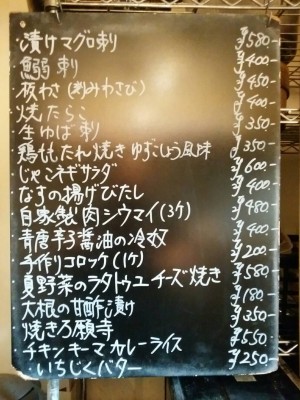 ・漬けマグロ刺 ¥580-
・鰯刺 ¥400-
・板わさ(刻みわさび) ¥450-
・焼たらこ ¥400-
・生ゆば刺 ¥350-
・鶏ももたれ焼き ゆずこしょう風味 ¥350-
・じゃこネギサラダ ¥600-
・なすの揚げびたし ¥400-
・自家製肉シウマイ(3ケ) ¥480-
・青唐辛子醤油の冷奴 ¥400-
・手作りコロッケ(1ケ) ¥200-
・夏野菜のラタトゥユチーズ焼き ¥580-
・大根の甘酢漬け ¥180-
・焼き万願寺 ¥350-
・チキンキーマカレーライス ¥550-
・いちじくバター ¥250-